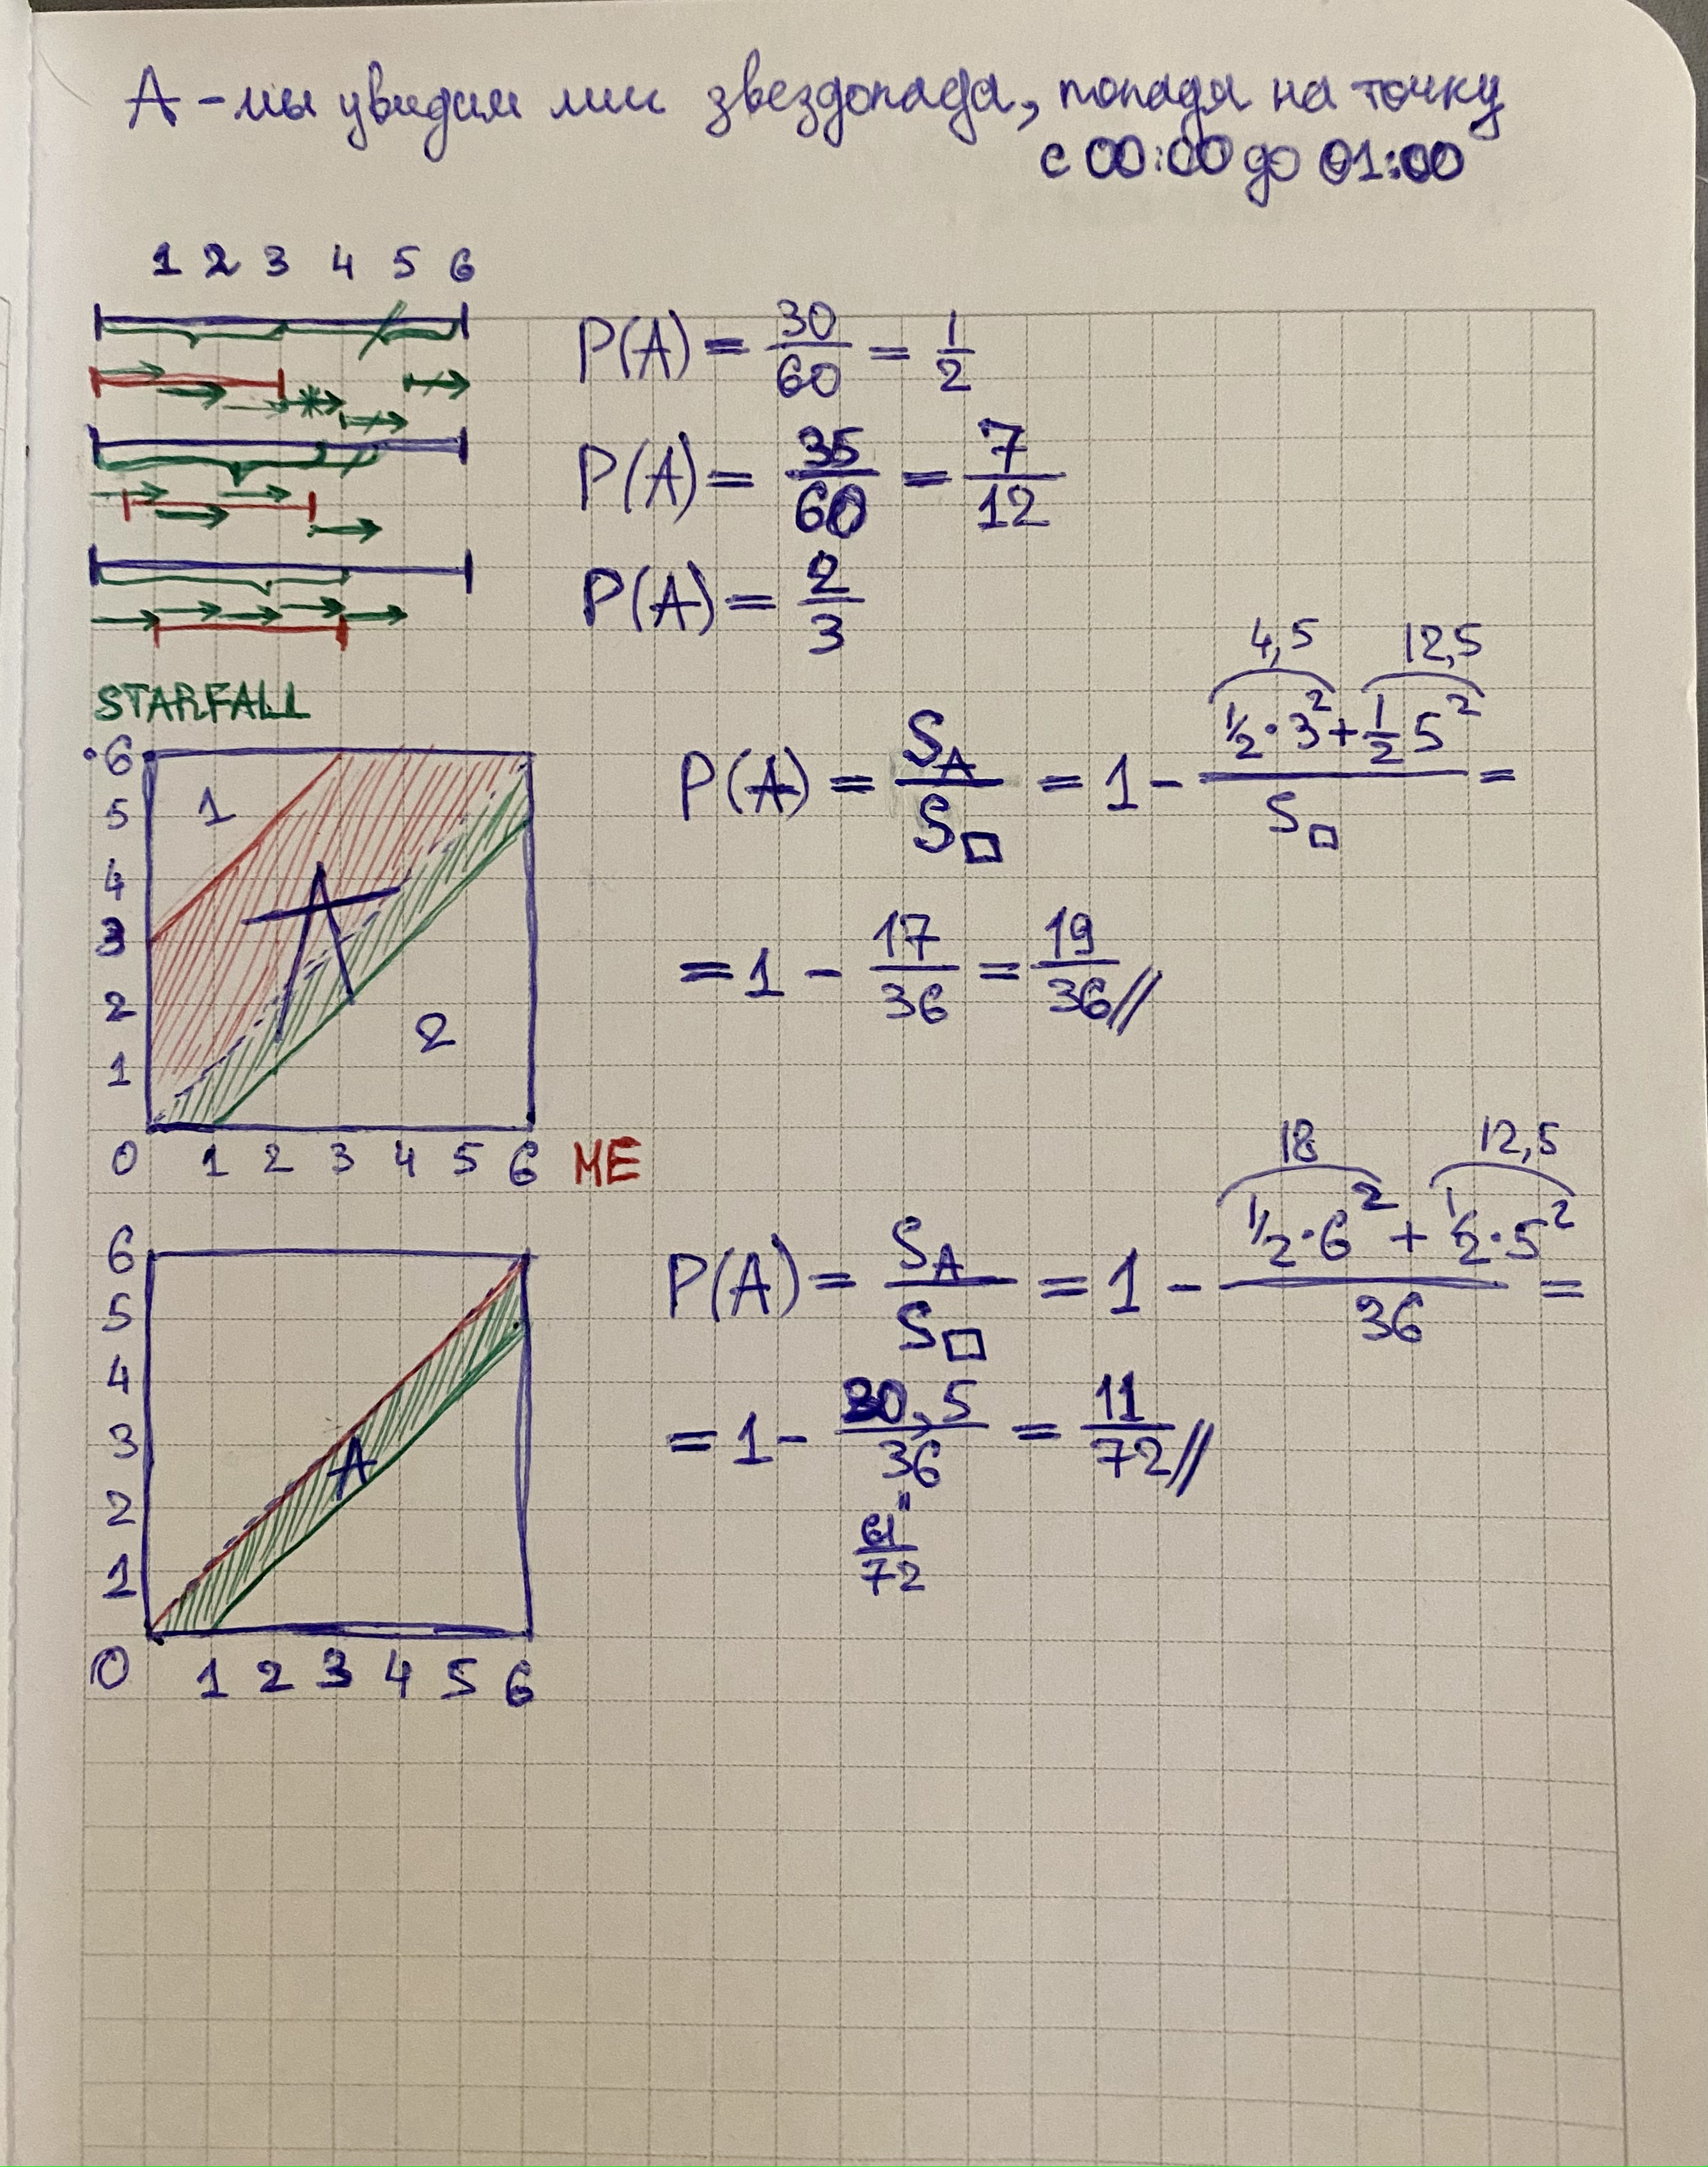 А – мы увидим лик звездопада, попадя на точку
с 00:00 до 01:00
1 2 3 4 5 6
P(A) = 30/60 = 1/2
P(A) = 35/60 = 7/12
P(A) = 2/3
STARFALL
6
5
4
3
2
1
0 1 2 3 4 5 6 ME
1
A
2
4,5 12,5
P(A) = S_A/S_□ = 1 - (1/2·3² + 1/2 5²)/S_□ =
= 1 - 17/36 = 19/36//
6
5
4
3
2
1
0 1 2 3 4 5 6
A
18 12,5
P(A) = S_A/S_□ = 1 - (1/2·6² + 1/2·5²)/36 =
= 1 - 30,5/36 = 11/72//
"
61/72